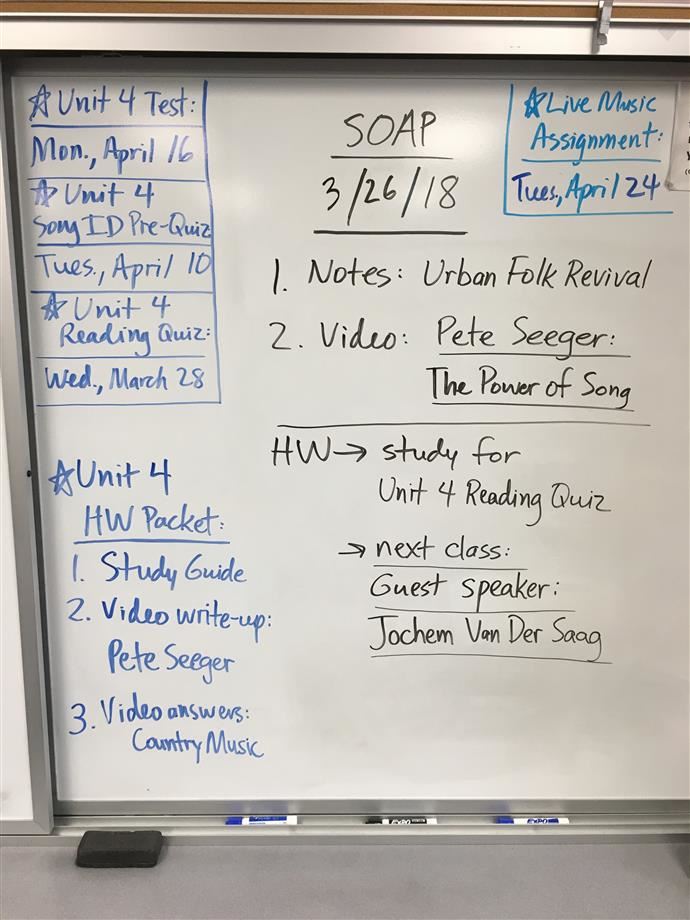 ☆ Unit 4 Test:
Mon., April 16
☆ Unit 4
Song ID Pre-Quiz
Tues., April 10
☆ Unit 4
Reading Quiz:
Wed., March 28
SOAP
3/26/18
☆ Live Music
Assignment:
Tues., April 24
1. Notes: Urban Folk Revival
2. Video: Pete Seeger:
The Power of Song
HW → study for
Unit 4 Reading Quiz
→ next class:
Guest speaker:
Jochem Van Der Saag
☆ Unit 4
HW Packet:
1. Study Guide
2. Video write-up:
Pete Seeger
3. Video answers:
Country Music
EXPO